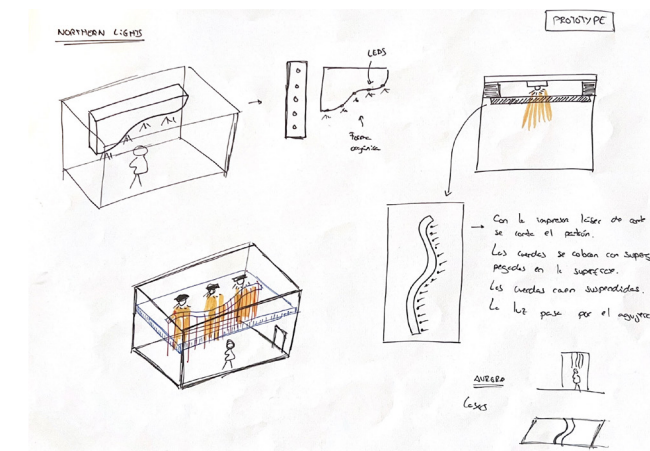 NORTHERN LIGHTS
PROTOTYPE
LEDS
Forma
orgánica
Con la impresora láser de corte
se corta el patrón.
Las cuerdas se colocan con
pegadas en la superficie.
Las cuerdas caen suspendidas.
La luz pasa por el agujero